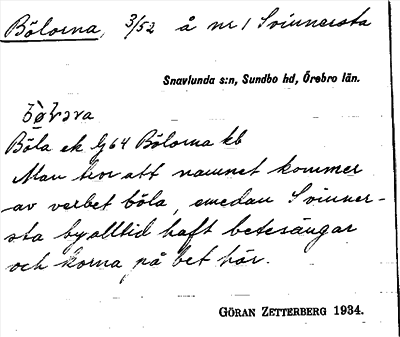 Bölorna, 3/52 å nr 1 Svinnersta
Snavlunda s:n, Sundbo hd, Örebro län.
Böla ek G64 Bölorna kb
Man tror att namnet kommer
av verbet böla, emedan Svinner-
sta by alltid haft betesängar
och korna på bet här.
GÖRAN ZETTERBERG 1934.